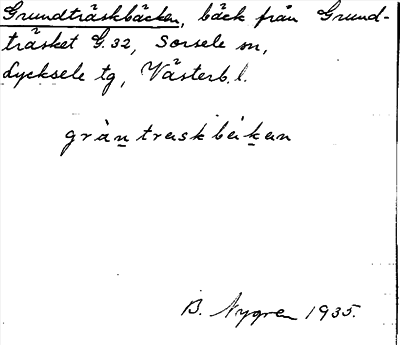 Grundträskbäcken, bäck från Grund-
träsket G.32, Sorsele sn,
Lycksele tg, Västerb.l.
gràn traskbékan
B. Nygren 1935.